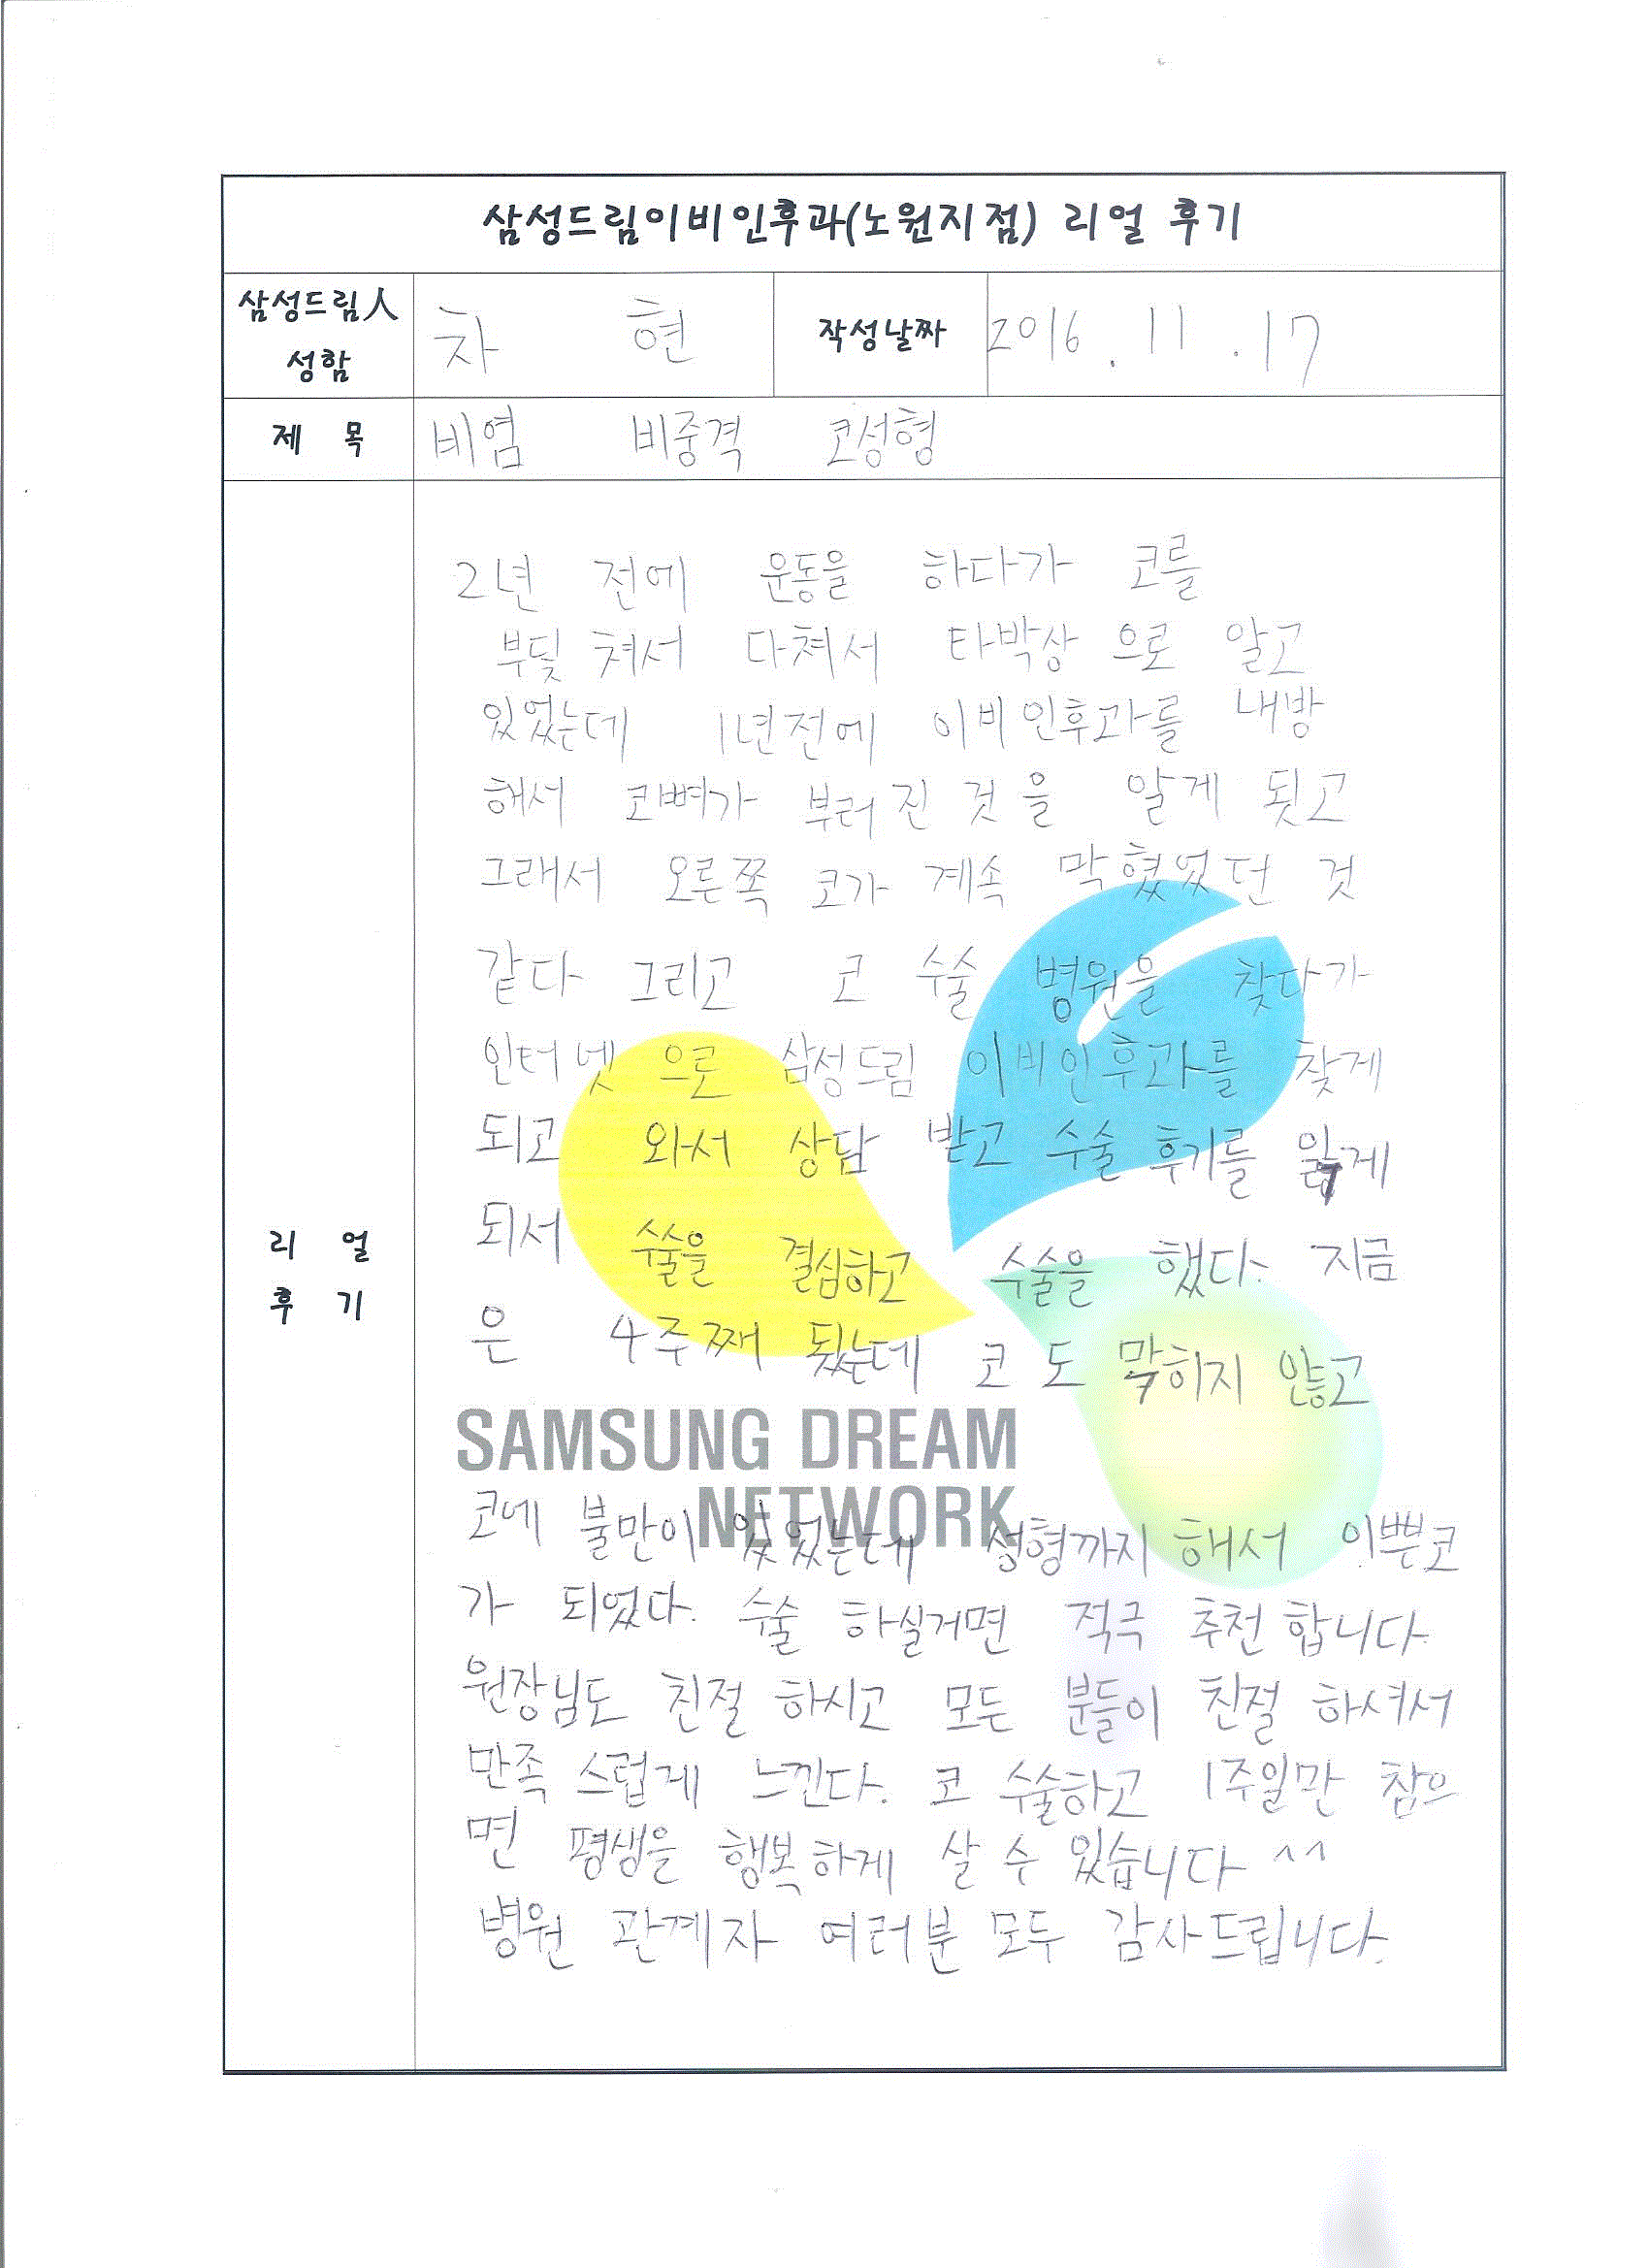 삼성드림이비인후과(노원지점) 리얼 후기
삼성드림人
성함
차 현
작성날짜
2016. 11. 17
제 목
비염 비중격 코성형
리 얼
후 기
2년 전에 운동을 하다가 코를
부딫쳐서 다쳐서 타박상 으로 알고
있었는데 1년전에 이비인후과를 내방
해서 코뼈가 부러진 것을 알게 됫고
그래서 오른쪽 코가 계속 막혔었던 것
같다 그리고 코 수술 병원을 찾다가
인터넷으로 삼성드림 이비인후과를 찾게
되고 와서 상담 받고 수술 후기를 읽게
되서 수술을 결심하고 수술을 했다. 지금
은 4주째 됬는데 코도 막히지 않고
SAMSUNG DREAM
NETWORK
코에 불만이 있었는데 성형까지 해서 이쁜코
가 되었다. 수술 하실거면 적극 추천 합니다.
원장님도 친절 하시고 모든 분들이 친절 하셔서
만족 스럽게 느낀다. 코 수술하고 1주일만 참으
면 평생을 행복하게 살 수 있습니다 ^^
병원 관계자 여러분 모두 감사드립니다.